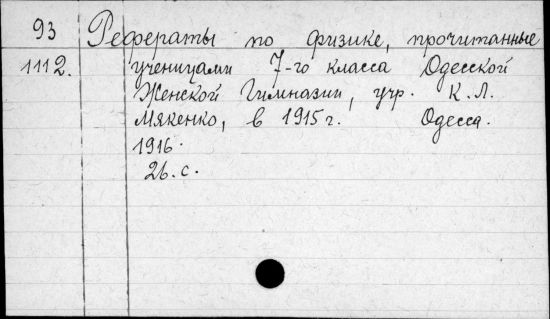 93 Рефераты по физике, прочитанные
1112. ученицами 7-го класса Одесской
Женской Гимназии, учр. К. Л.
Мякенко, в 1915 г. Одесса.
1916.
26. с.